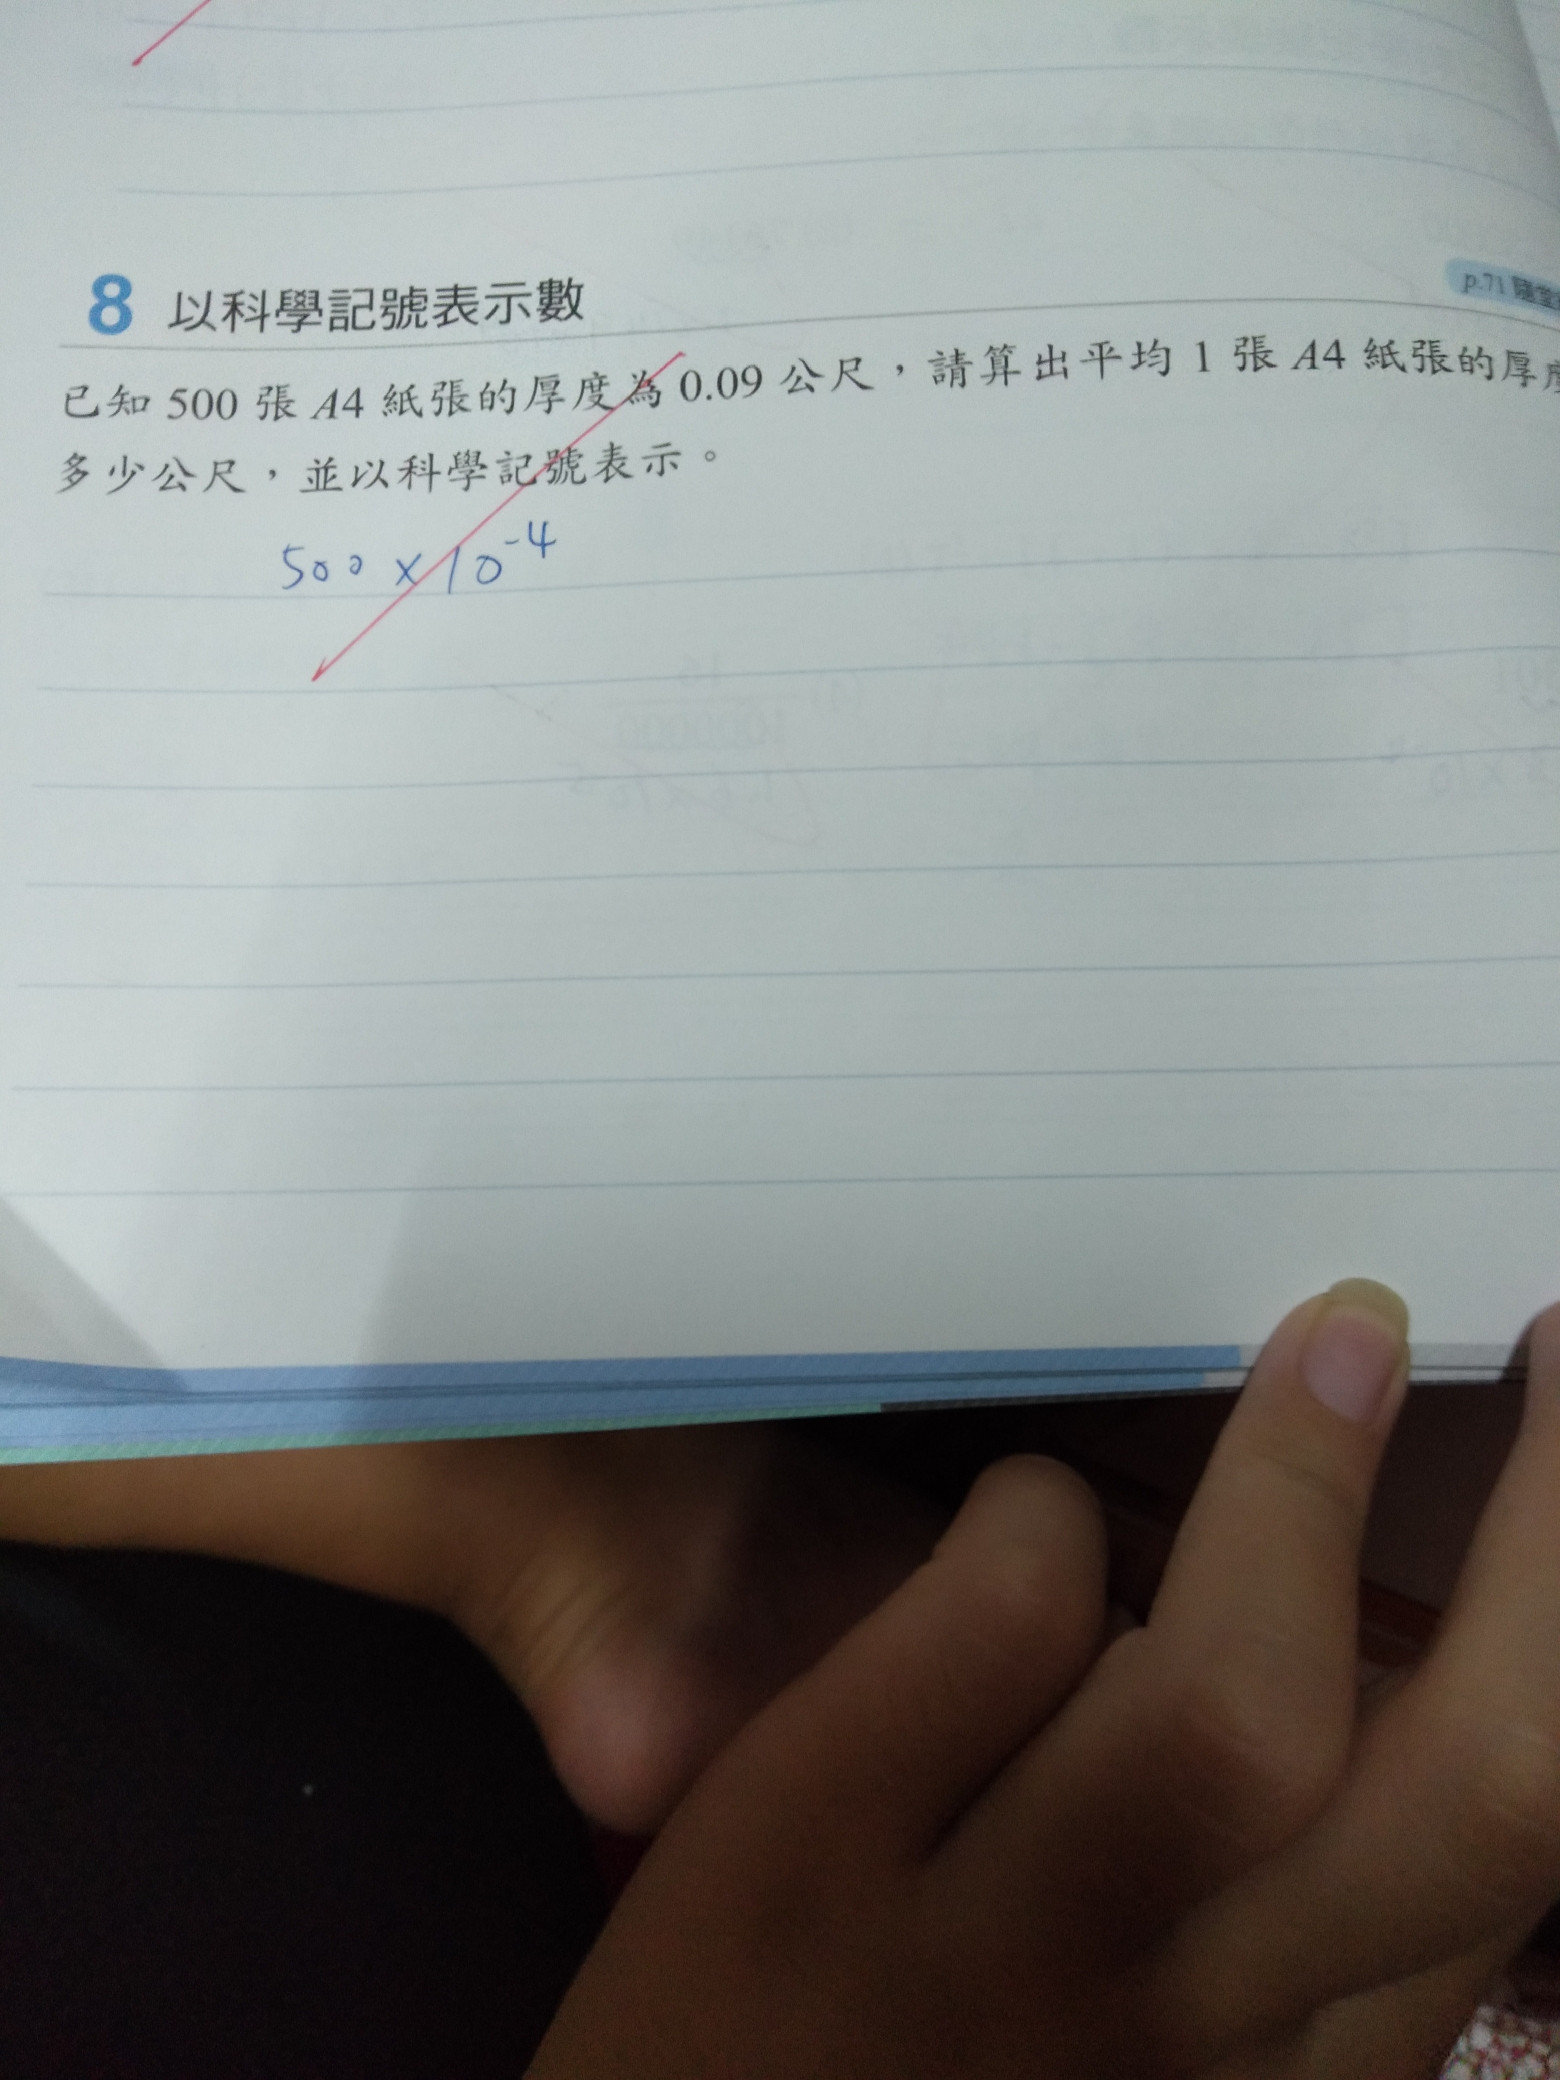 8 以科學記號表示數
p.71 隨堂
已知 500 張 A4 紙張的厚度為 0.09 公尺，請算出平均 1 張 A4 紙張的厚度
多少公尺，並以科學記號表示。
500 × 10⁻⁴